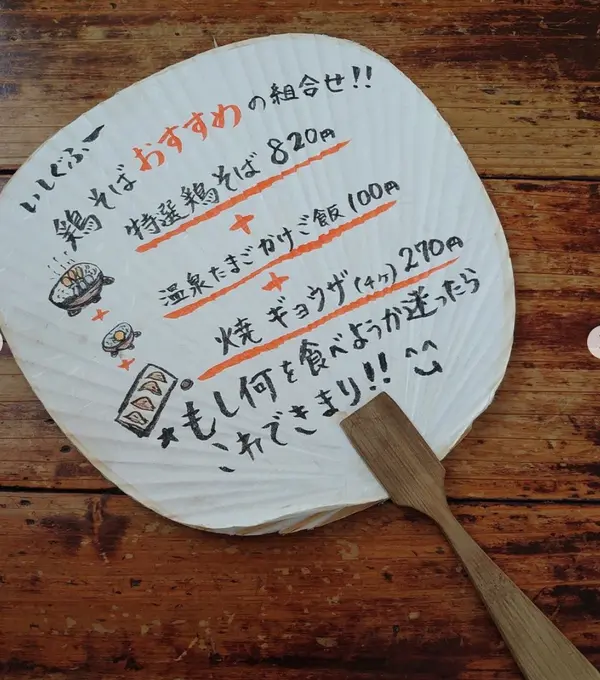 いしぐふー
鶏そばおすすめの組合せ!!
特選鶏そば 820円
+
温泉たまごかけご飯 100円
+
焼ギョウザ(4ヶ) 270円
★もし何を食べようか迷ったら
これできまり!!